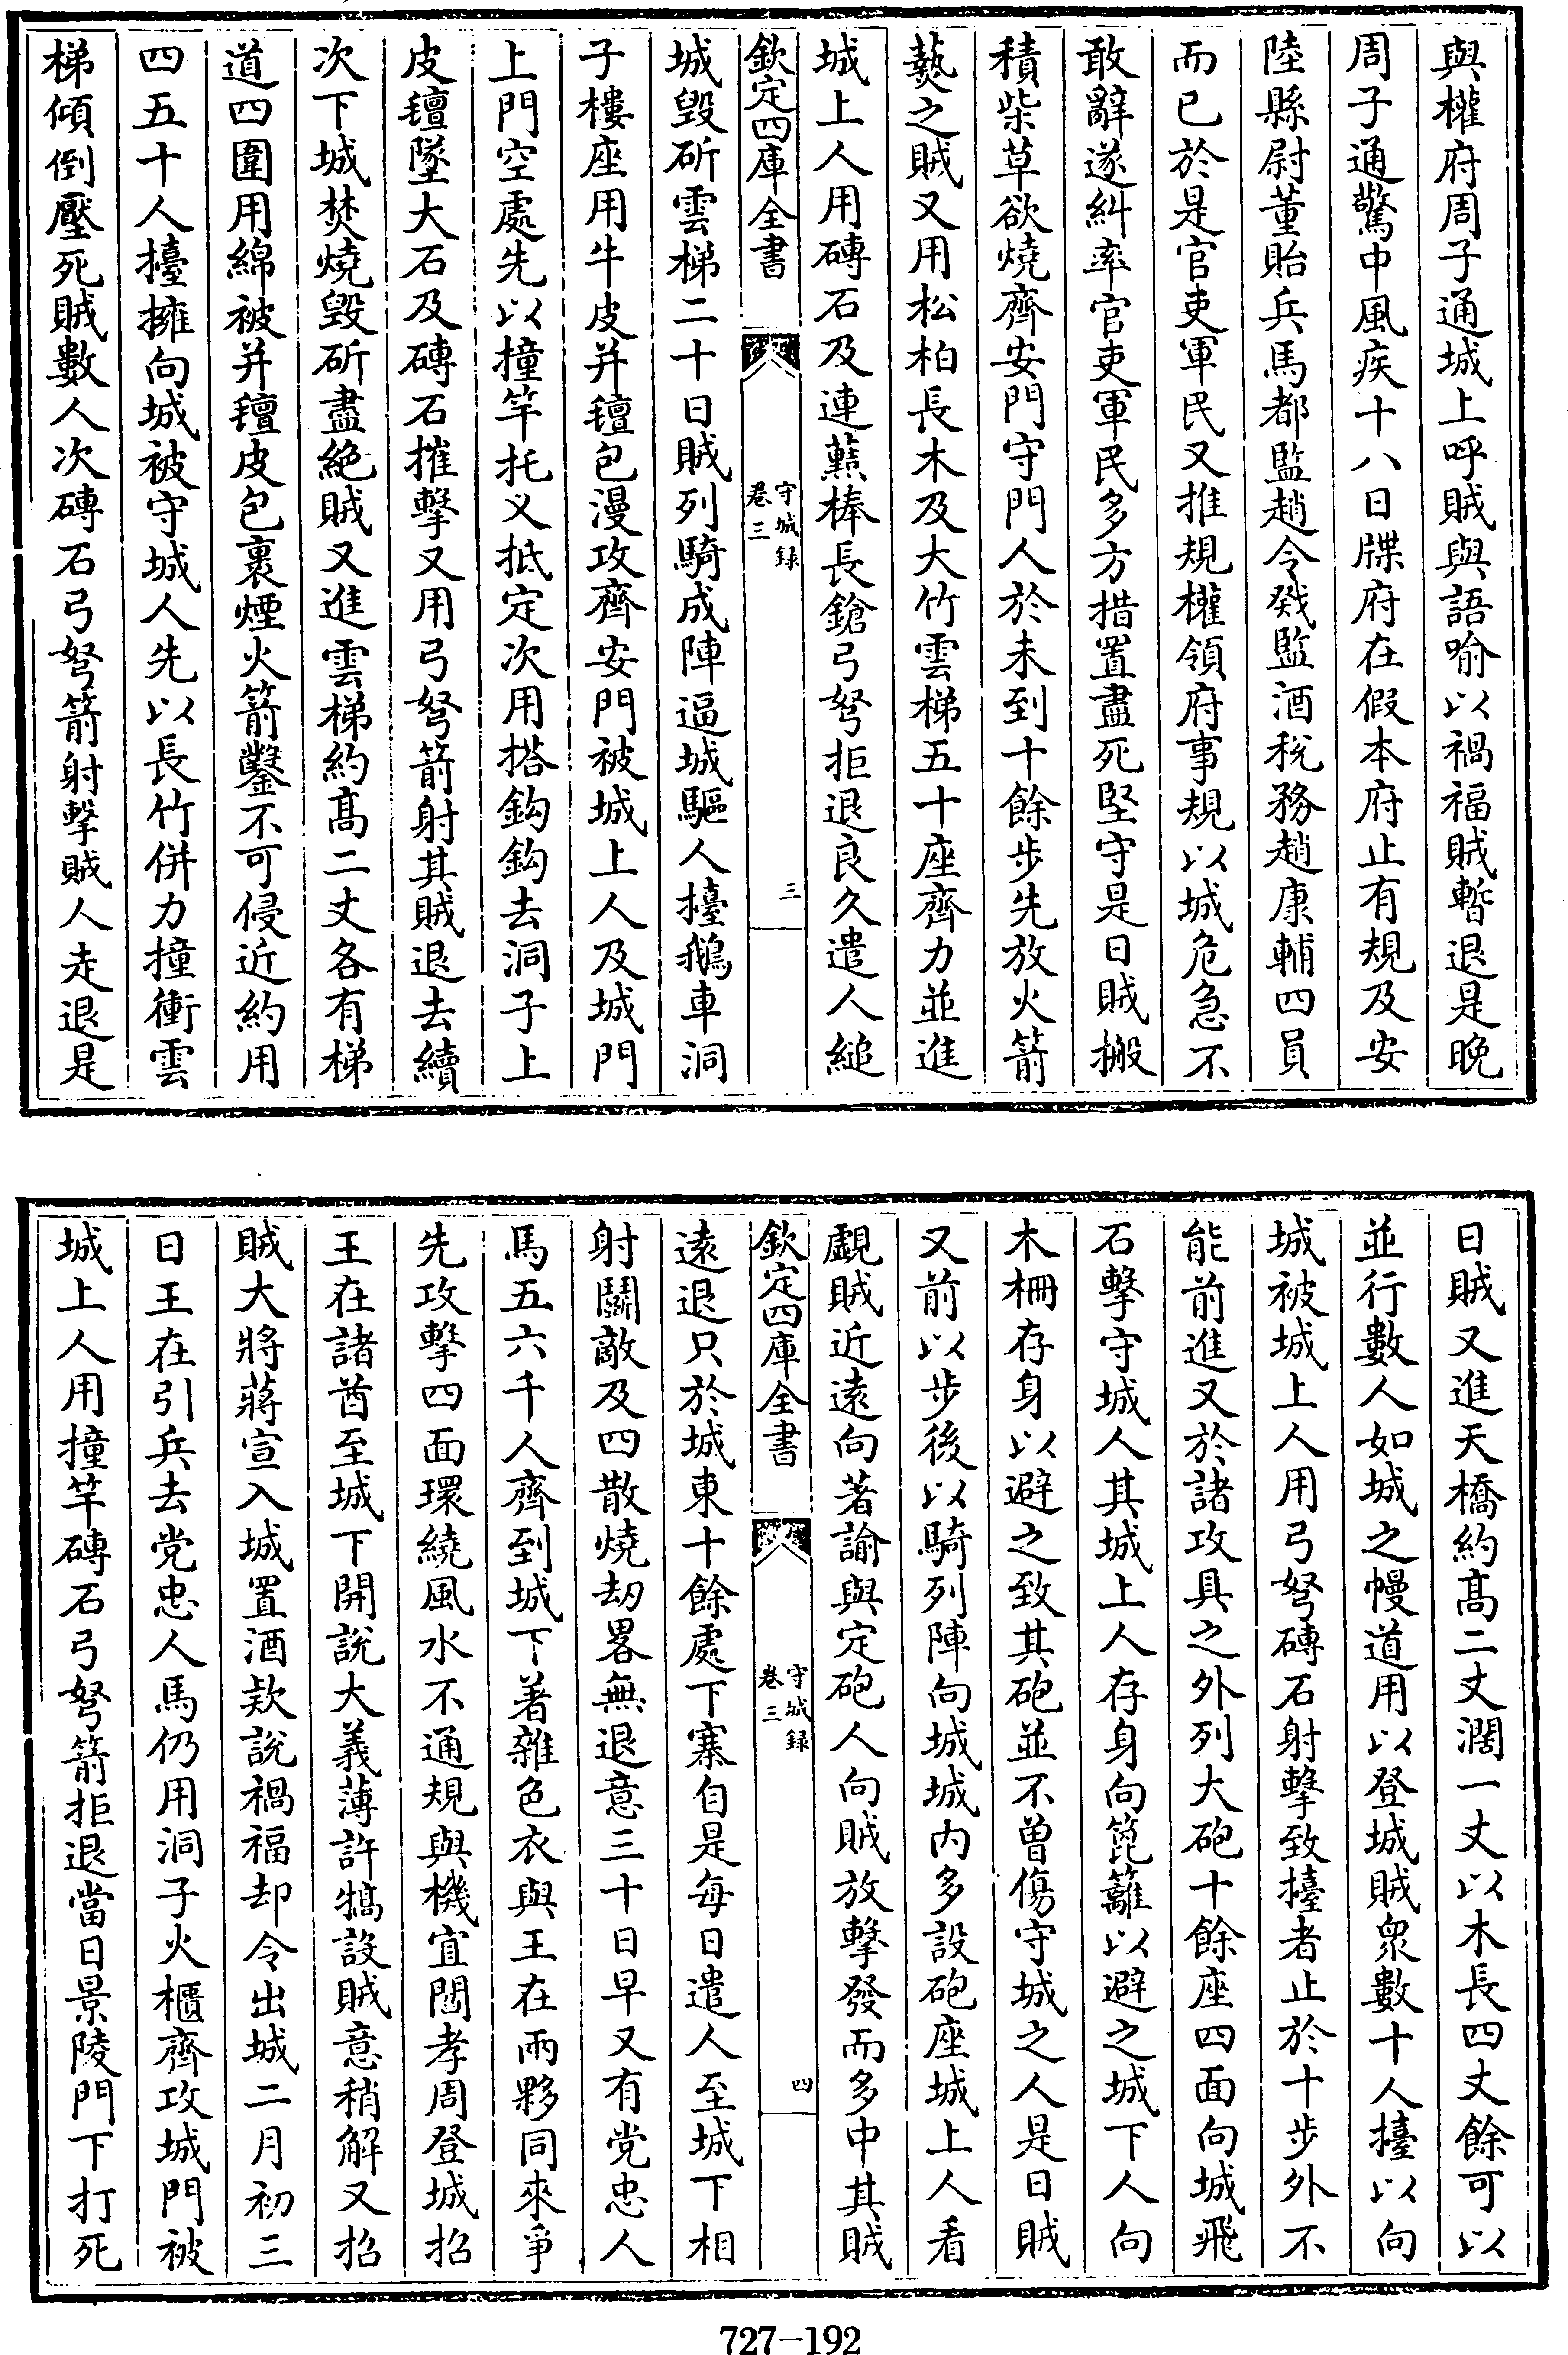 與權府周子通城上呼賊與語喻以禍福賊暫退是晚
周子通驚中風疾十八日牒府在假本府止有規及安
陸縣尉董貽兵馬都監趙令戣監酒稅務趙康輔四員
而已於是官吏軍民又推規權領府事規以城危急不
敢辭遂糾率官吏軍民多方措置盡死堅守是日賊搬
積柴草欲燒齊安門守門人於未到十餘步先放火箭
爇之賊又用松柏長木及大竹雲梯五十座齊力並進
城上人用磚石及連蘸棒長鎗弓弩拒退良久遣人縋
欽定四庫全書
守城録
卷三
三
城毀斫雲梯二十日賊列騎成陣逼城驅人擡鵝車洞
子樓座用牛皮并氊包漫攻齊安門被城上人及城門
上門空處先以撞竿托义抵定次用搭鈎鈎去洞子上
皮氊墜大石及磚石摧擊又用弓弩箭射其賊退去續
次下城焚燒毀斫盡絕賊又進雲梯約高二丈各有梯
道四圍用綿被并氊皮包裹煙火箭鑿不可侵近約用
四五十人擡擁向城被守城人先以長竹併力撞衝雲
梯傾倒壓死賊數人次磚石弓弩箭射擊賊人走退是
日賊又進天橋約高二丈濶一丈以木長四丈餘可以
並行數人如城之幔道用以登城賊衆數十人擡以向
城被城上人用弓弩磚石射擊致擡者止於十步外不
能前進又於諸攻具之外列大砲十餘座四面向城飛
石擊守城人其城上人存身向箆籬以避之城下人向
木柵存身以避之致其砲並不曾傷守城之人是日賊
又前以步後以騎列陣向城城内多設砲座城上人看
覷賊近遠向著諭與定砲人向賊放擊發而多中其賊
欽定四庫全書
守城録
卷三
四
遠退只於城東十餘處下寨自是每日遣人至城下相
射鬭敵及四散燒刼畧無退意三十日早又有党忠人
馬五六千人齊到城下著雜色衣與王在兩夥同來爭
先攻擊四面環繞風水不通規與機宜閻孝周登城招
王在諸酋至城下開說大義薄許犒設賊意稍解又招
賊大將蔣宣入城置酒欵說禍福却令出城二月初三
日王在引兵去党忠人馬仍用洞子火櫃齊攻城門被
城上人用撞竿磚石弓弩箭拒退當日景陵門下打死
727-192